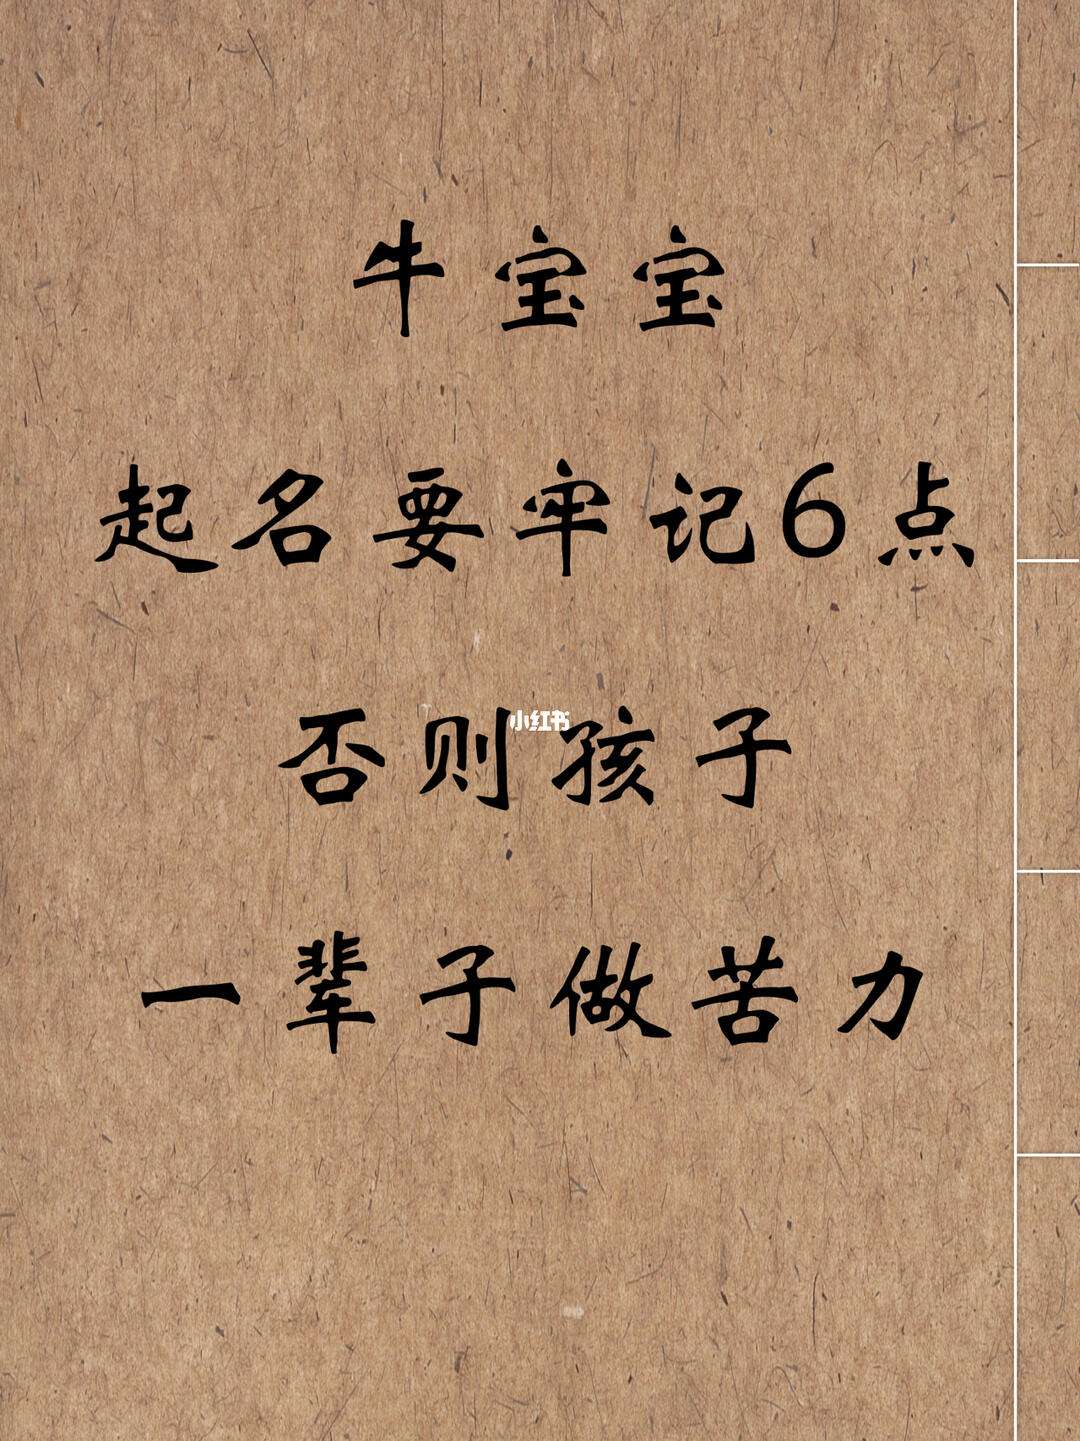 牛宝宝
起名要牢记6点
小红书
否则孩子
一辈子做苦力